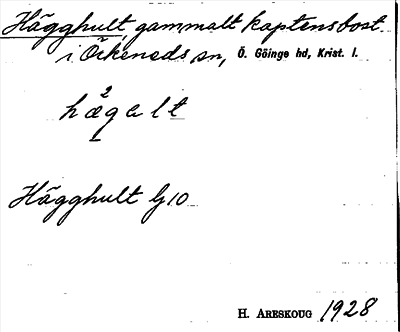 Hägghult, gammalt kaptensbost.
i Örkeneds sn, Ö. Göinge hd, Krist. l.
2
hægalt
Hägghult Gj 10
H. ARESKOUG 1928